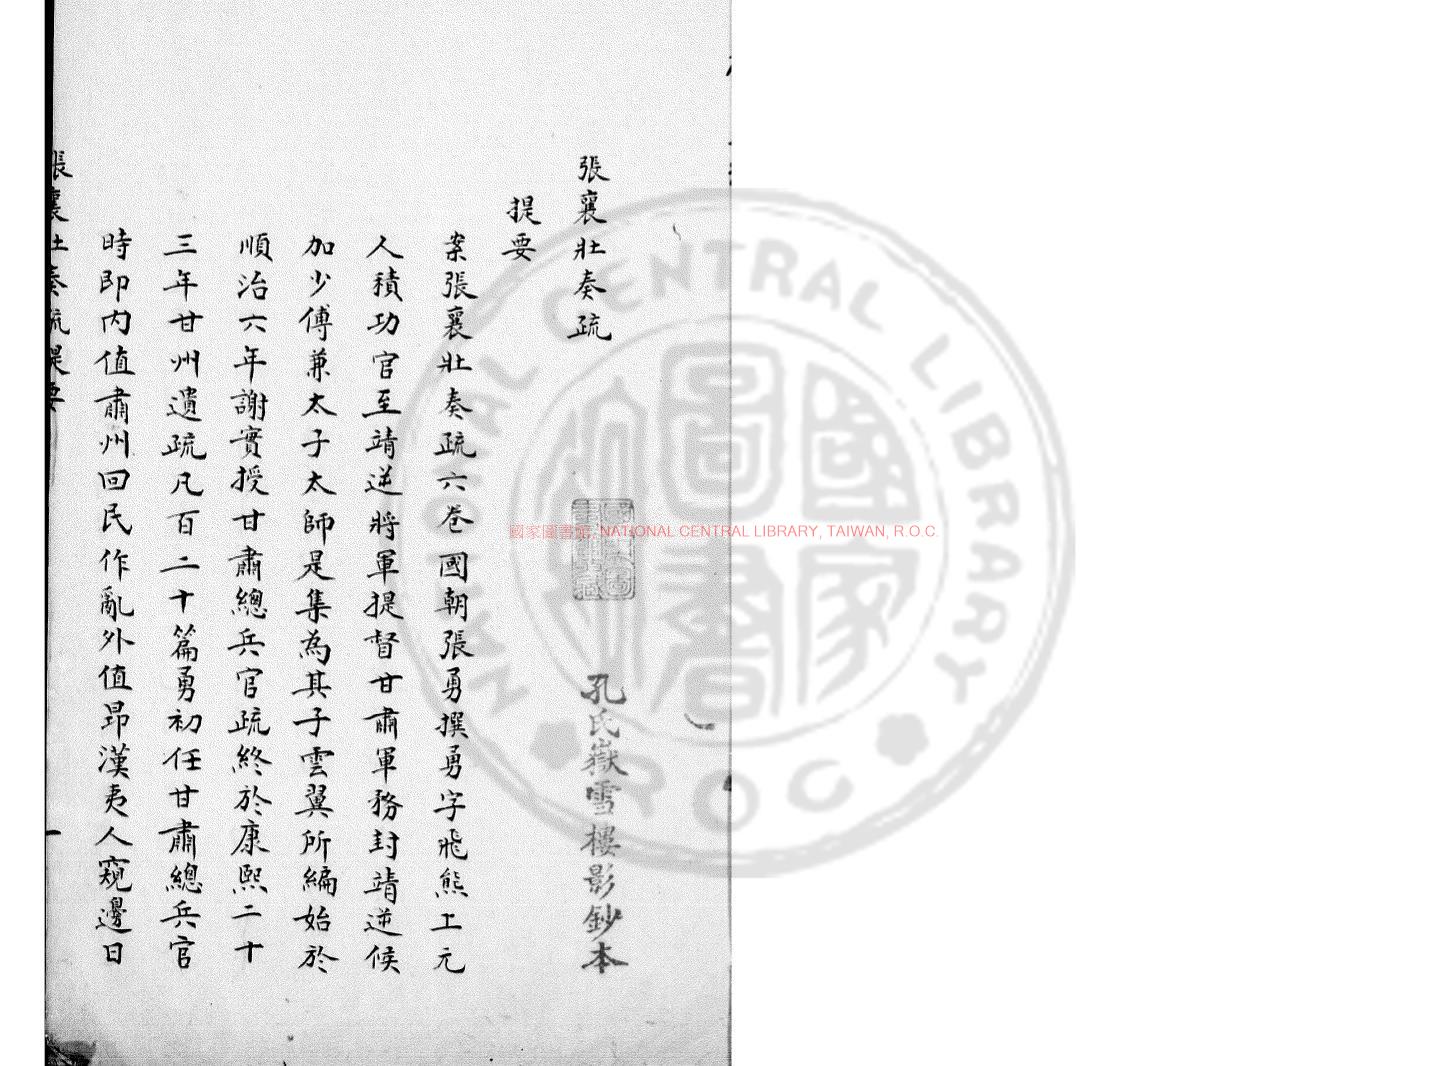 張襄壯奏疏
孔氏嶽雪樓影鈔本
提要
案張襄壯奏疏六卷國朝張勇撰勇字飛熊上元
人積功官至靖逆將軍提督甘肅軍務封靖逆侯
加少傅兼太子太師是集為其子雲翼所編始於
順治六年謝實授甘肅總兵官疏終於康熙二十
三年甘州遺疏凡百二十篇勇初任甘肅總兵官
時即內值肅州回民作亂外值昂漢夷人窺邊日
張襄壯奏疏提要
一
國家圖書館, NATIONAL CENTRAL LIBRARY, TAIWAN, R.O.C.
NATIONAL CENTRAL LIBRARY
ROC
國家圖書